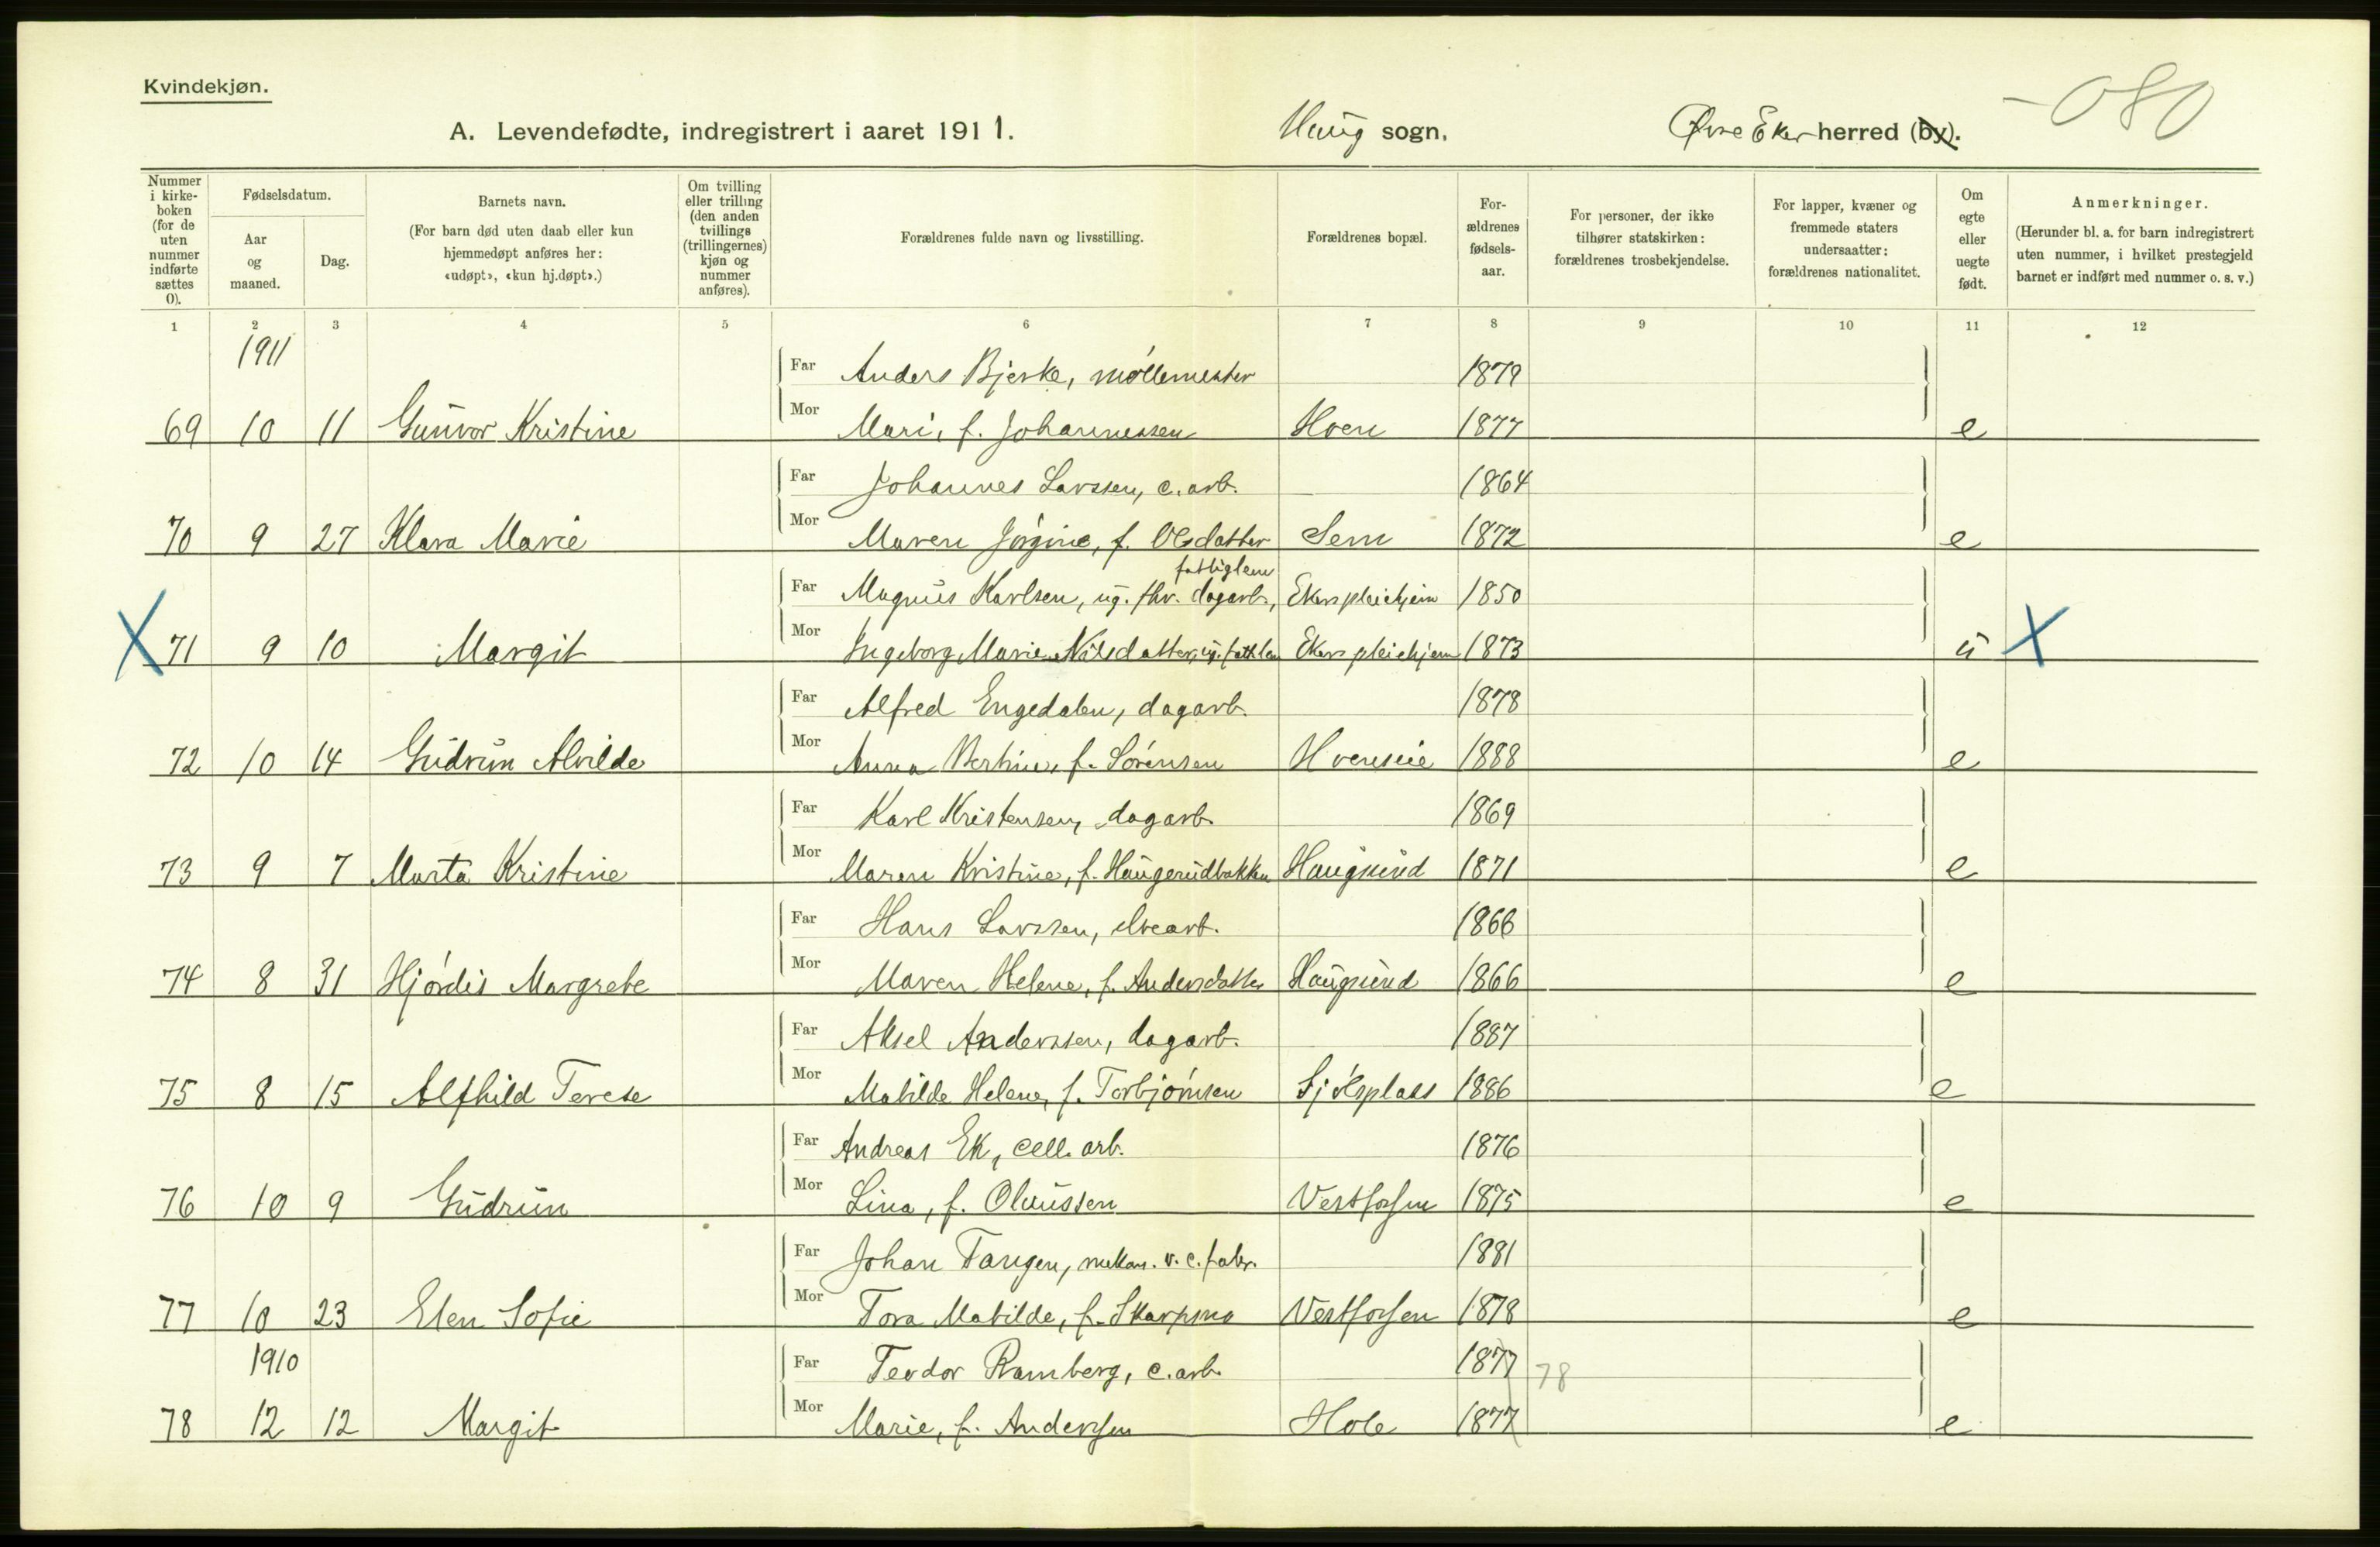 Kvindekjøn.
-080
A. Levendefødte, indregistrert i aaret 1911. Haug sogn, Øvre Eker herred (by).
Nummer i kirke-boken (for de uten nummer indførte sættes 0).
Fødselsdatum.
Aar og maaned.
Dag.
Barnets navn.
(For barn død uten daab eller kun hjemmedøpt anføres her: «udøpt», «kun hj.døpt».)
Om tvilling eller trilling (den anden tvillings (trillingernes) kjøn og nummer anføres).
Forældrenes fulde navn og livsstilling.
Forældrenes bopæl.
For-ældrenes fødsels-aar.
For personer, der ikke tilhører statskirken: forældrenes trosbekjendelse.
For lapper, kvæner og fremmede staters undersaatter: forældrenes nationalitet.
Om egte eller uegte født.
Anmerkninger.
(Herunder bl. a. for barn indregistrert uten nummer, i hvilket prestegjeld barnet er indført med nummer o. s. v.)
1 2 3 4 5 6 7 8 9 10 11 12
1911
Far Anders Bjerke, møllemester 1879
69 10 11 Gunvor Kristine Mor Mari, f. Johannessen Hoen 1877 e
Far Johannes Larssen, c. arb. 1864
70 9 27 Klara Marie Mor Maren Jørgine, f. Olsdatter Sem 1872 e
fattiglem
Far Magnus Karlsen, ug. fhv. dagarb., Ekers pleiehjem 1850
X 71 9 10 Margit Mor Ingeborg Marie Nilsdatter, ug. fattlem Ekers pleiehjem 1873 u X
Far Alfred Engedalen, dagarb. 1878
72 10 14 Gudrun Alvilde Mor Anna Bertine, f. Sørensen Hoenseie 1888 e
Far Karl Kristensen, dagarb. 1869
73 9 7 Marta Kristine Mor Maren Kristine, f. Haugerudbakken Haugsund 1871 e
Far Hans Larssen, elvearb. 1866
74 8 31 Hjørdis Margrete Mor Maren Helene, f. Andersdatter Haugsund 1866 e
Far Aksel Anderssen, dagarb. 1887
75 8 15 Alfhild Terese Mor Matilde Helene, f. Torbjørnsen 1886 e
Far Andreas Ek, cell. arb. 1876
76 10 9 Gudrun Mor Lina, f. Olaussen Vestfossen 1875 e
Far Johan Tangen, mekan. v. c. fabr. 1881
77 10 23 Elen Sofie Mor Tora Matilde, f. Skarpmo Vestfossen 1878 e
1910
Far Teodor Ramberg, c. arb. 1877 78
78 12 12 Margit Mor Marie, f. Anderssen Hole 1877 e